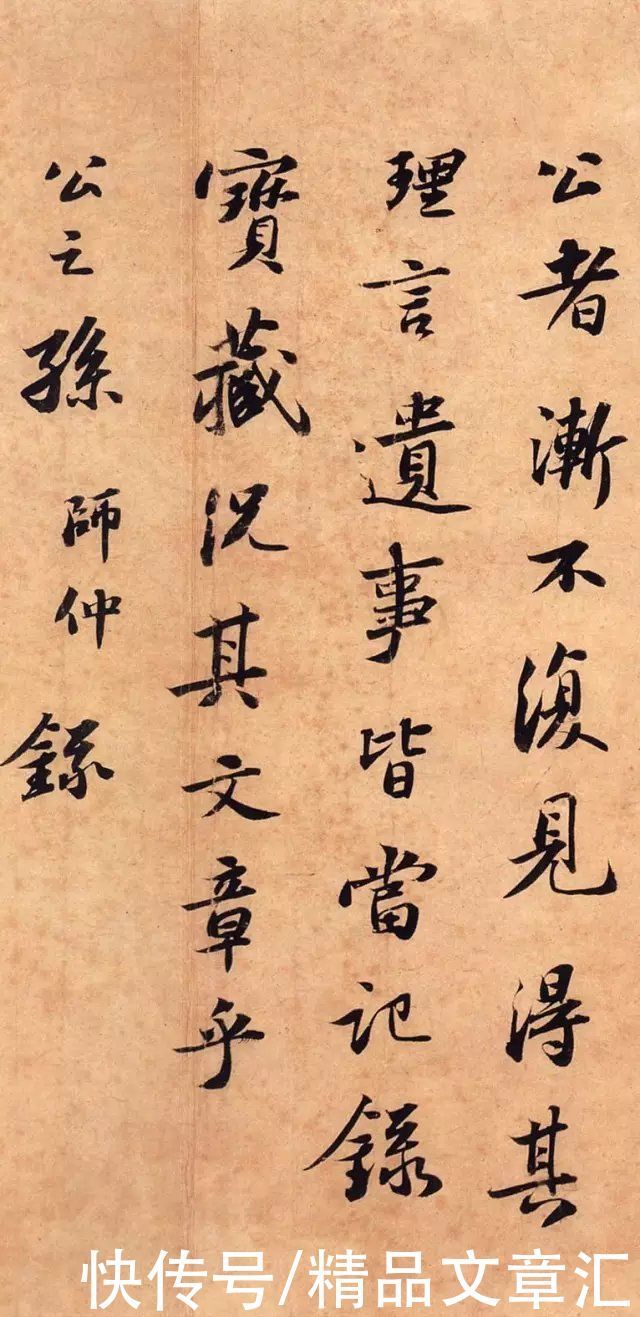 公者漸不復見得其
理言遺事皆當記錄
寶藏況其文章乎
公之孫師仲錄
快传号/精品文章汇